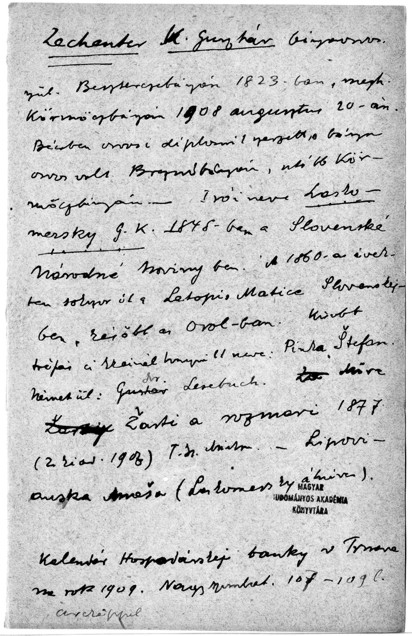 Zechenter K. Gusztáv bányaorvos.
szül. Beszterczebányán 1823-ban, megh.
Körmöczbányán 1908 augusztus 20-án.
Bécsben orvosi diplomát szerzett s bánya
orvos volt Breznóbányán, utóbb Kör-
möczbányán. — Írói neve Lasko-
mersky G. K. 1848-ban a Slovenské
Národné Noviny ben. A 1860-as évek-
ben sokszor írt a Letopis Matice Slovenskej-
ben, később az Orol-ban.
neve: Pinka Štefan.
Németül: Gustav Lesebuch. Műve
Žarti a rozmari 1877
(2 kiad. 1906) T. Sz. Márton. — Lipovi-
anska Maša (Laskomersky álnéven).
MAGYAR
TUDOMÁNYOS AKADÉMIA
KÖNYVTÁRA
Kalendár Hospodárskej banky v Trnave
na rok 1909. Nagyszombat. 107-109 l.
arczképpel